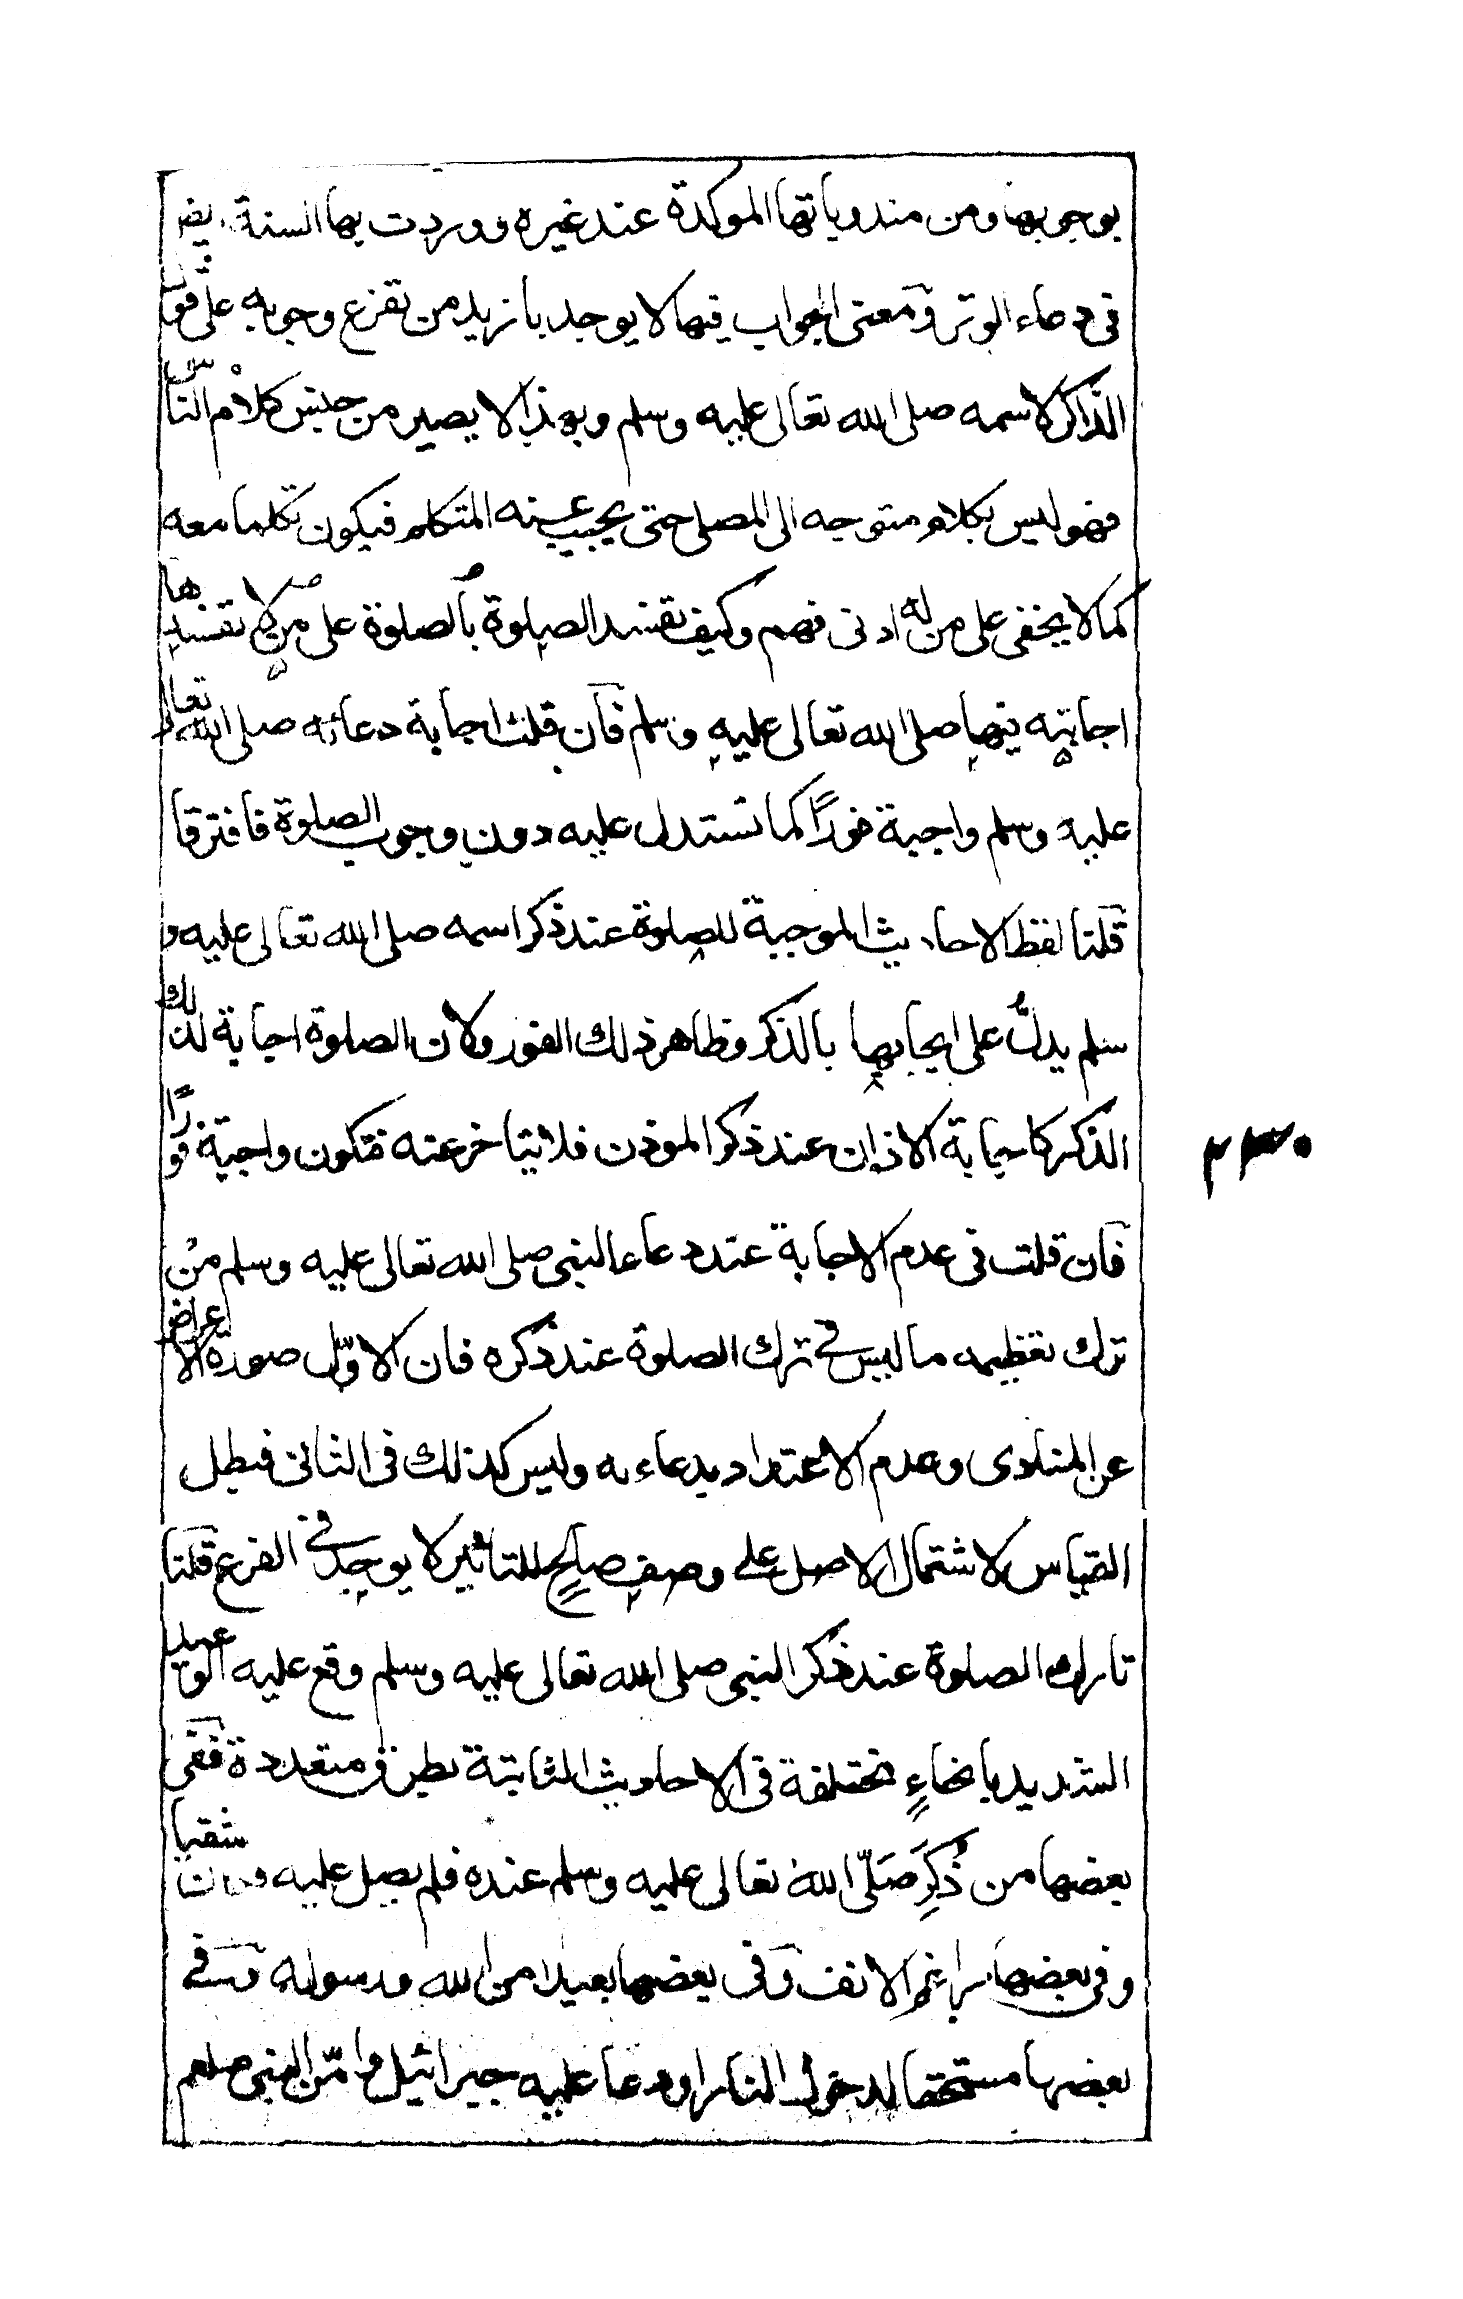 بوجوبها ومن مندوباتها الموكدة عند غيره ووردت بها السنة ايضا
فى دعاء الوتر ومعنى الجواب فيها لا يوجد بازيد من تفرع وجوبه على قول
الذاكر لاسمه صلى الله تعالى عليه وسلم وبهذا لا يصير من جنس كلام الناس
فهو ليس بكلام متوجه الى المصلى حتى يجيب عنه المتكلم فيكون تكلما معه
كما لا يخفى على من له ادنى فهم وكيف تفسد الصلوة بالصلوة على من لا تفسدها
اجابته فيها صلى الله تعالى عليه وسلم فان قلت اجابة دعائه صلى الله تعالى
عليه وسلم واجبة فورًا كما تستدل عليه دون وجوب الصلوة فافترقا
قلنا لفظ الاحاديث الموجبة للصلوة عند ذكر اسمه صلى الله تعالى عليه و
سلم يدلُّ على ايجابها بالذكر وظاهر ذلك الفور ولان الصلوة اجابة لذلك
الذكر كاجابة الاذان عند ذكر الموذن فلا يتاخر عنه فتكون واجبة فورًا
٢٣٠
فان قلت فى عدم الاجابة عند دعاء النبى صلى الله تعالى عليه وسلم من
ترك تعظيمه ما ليس فى ترك الصلوة عند ذكره فان الاوّل صورة الاعراض
عن المنادى وعدم الاعتداد بدعاءه وليس كذلك فى الثانى فبطل
القياس لاشتمال الاصل على وصف صالح للتاثير لا يوجد فى الفرع قلنا
تارك الصلوة عند ذكر النبى صلى الله تعالى عليه وسلم وقع عليه الوعيد
الشديد بانحاءٍ مختلفة فى الاحاديث الثابتة بطرق متعددة ففى
بعضها من ذُكِرَ صَلّى اللهُ تعالى عليه وسلم عنده فلم يصل عليه وكان شقيا
وفى بعضها راغم الانف وفى بعضها بعيدا من الله ورسوله وفى
بعضها مستحقا لدخول النار او دعا عليه جبرائيل وامّن النبى صلعم